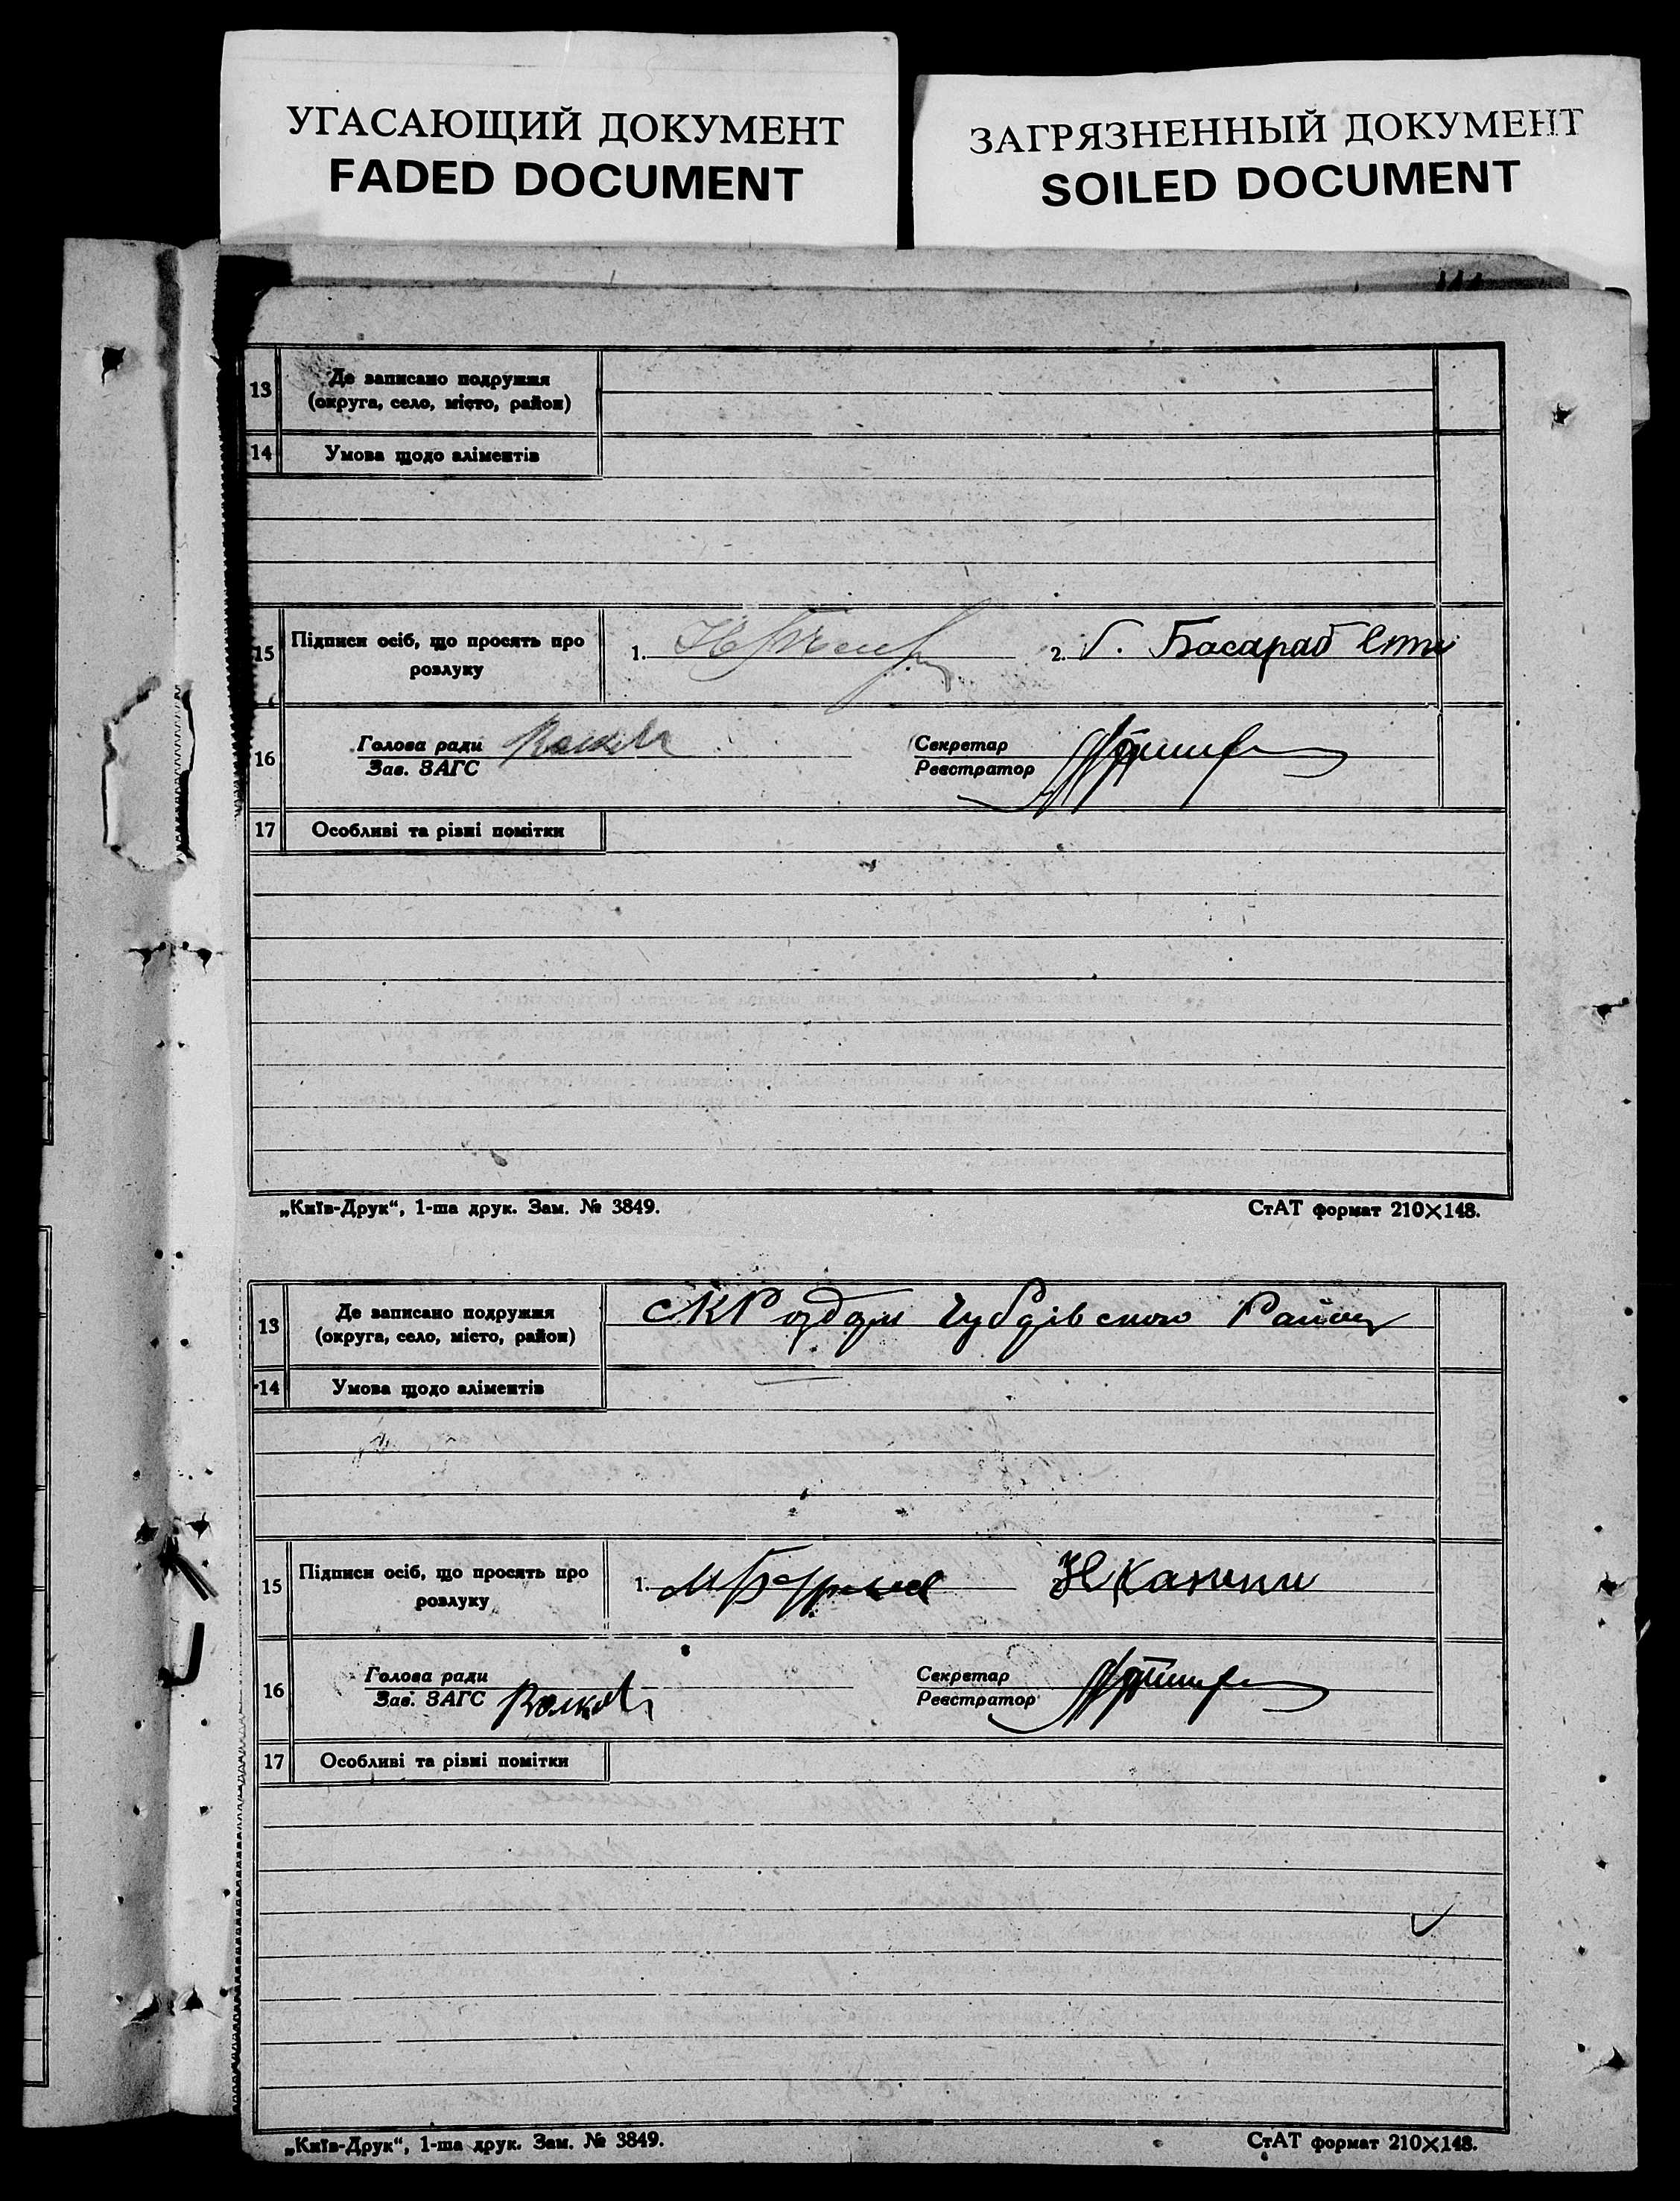 УГАСАЮЩИЙ ДОКУМЕНТ
FADED DOCUMENT
ЗАГРЯЗНЕННЫЙ ДОКУМЕНТ
SOILED DOCUMENT
13 Де записано подружжя
(округа, село, місто, район)
14 Умова щодо аліментів
15 Підписи осіб, що просять про
розлуку
1. 2. Басараб
16 Голова ради
Зав. ЗАГС
Секретар
Реєстратор
17 Особливі та різні помітки
„Київ-Друк“, 1-ша друк. Зам. № 3849. СтАТ формат 210×148.
13 Де записано подружжя
(округа, село, місто, район)
Району
14 Умова щодо аліментів
15 Підписи осіб, що просять про
розлуку
1.
16 Голова ради
Зав. ЗАГС Волков
Секретар
Реєстратор
17 Особливі та різні помітки
„Київ-Друк“, 1-ша друк. Зам. № 3849. СтАТ формат 210×148.